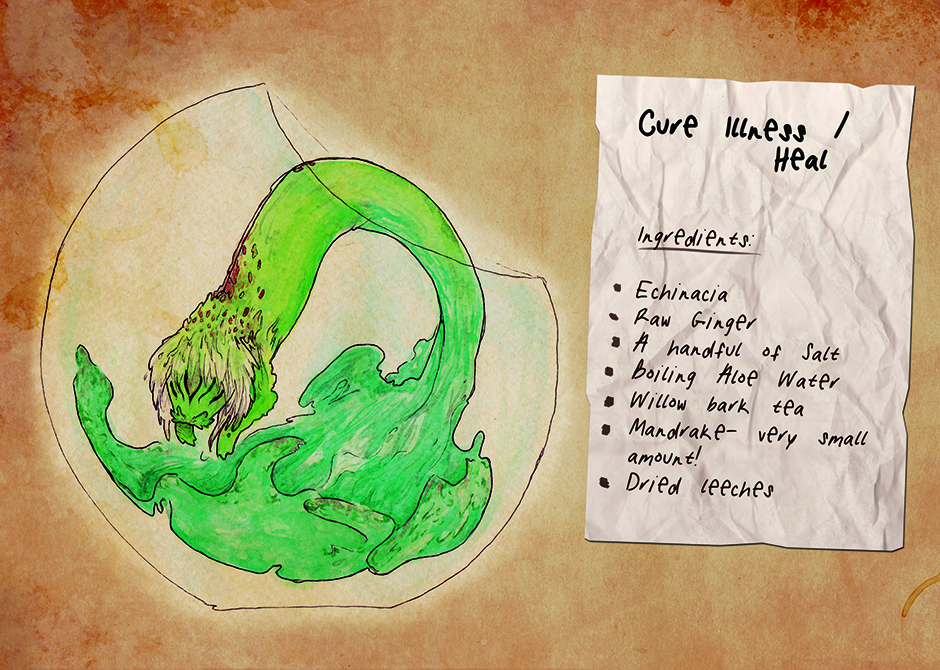 Cure Illness /
Heal
Ingredients:
• Echinacia
• Raw Ginger
• A handful of Salt
• Boiling Aloe Water
• Willow bark tea
• Mandrake- very small
amount!
• Dried leeches